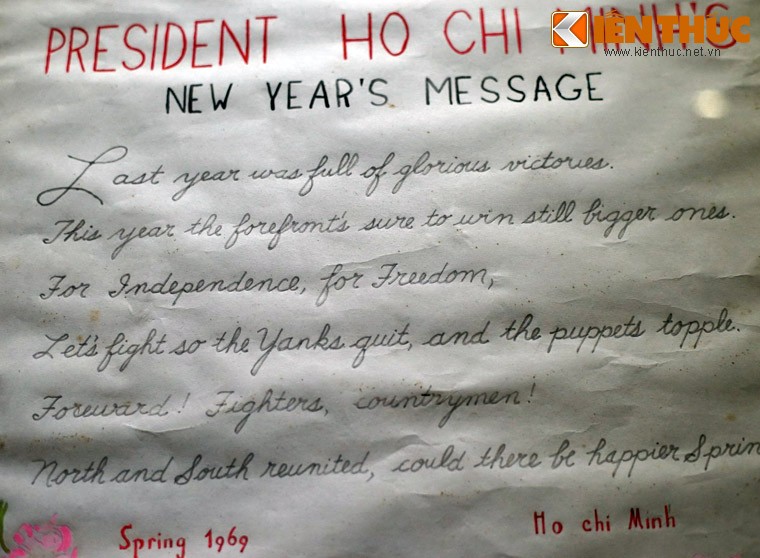 PRESIDENT HO CHI MINH'S
KIẾN THỨC
www.kienthuc.net.vn
NEW YEAR'S MESSAGE
Last year was full of glorious victories.
This year the forefront's sure to win still bigger ones.
For Independence, for Freedom,
Let's fight so the Yanks quit, and the puppets topple.
Foreward! Fighters, countrymen!
North and South reunited, could there be happier Sprin
Spring 1969
Ho chi Minh